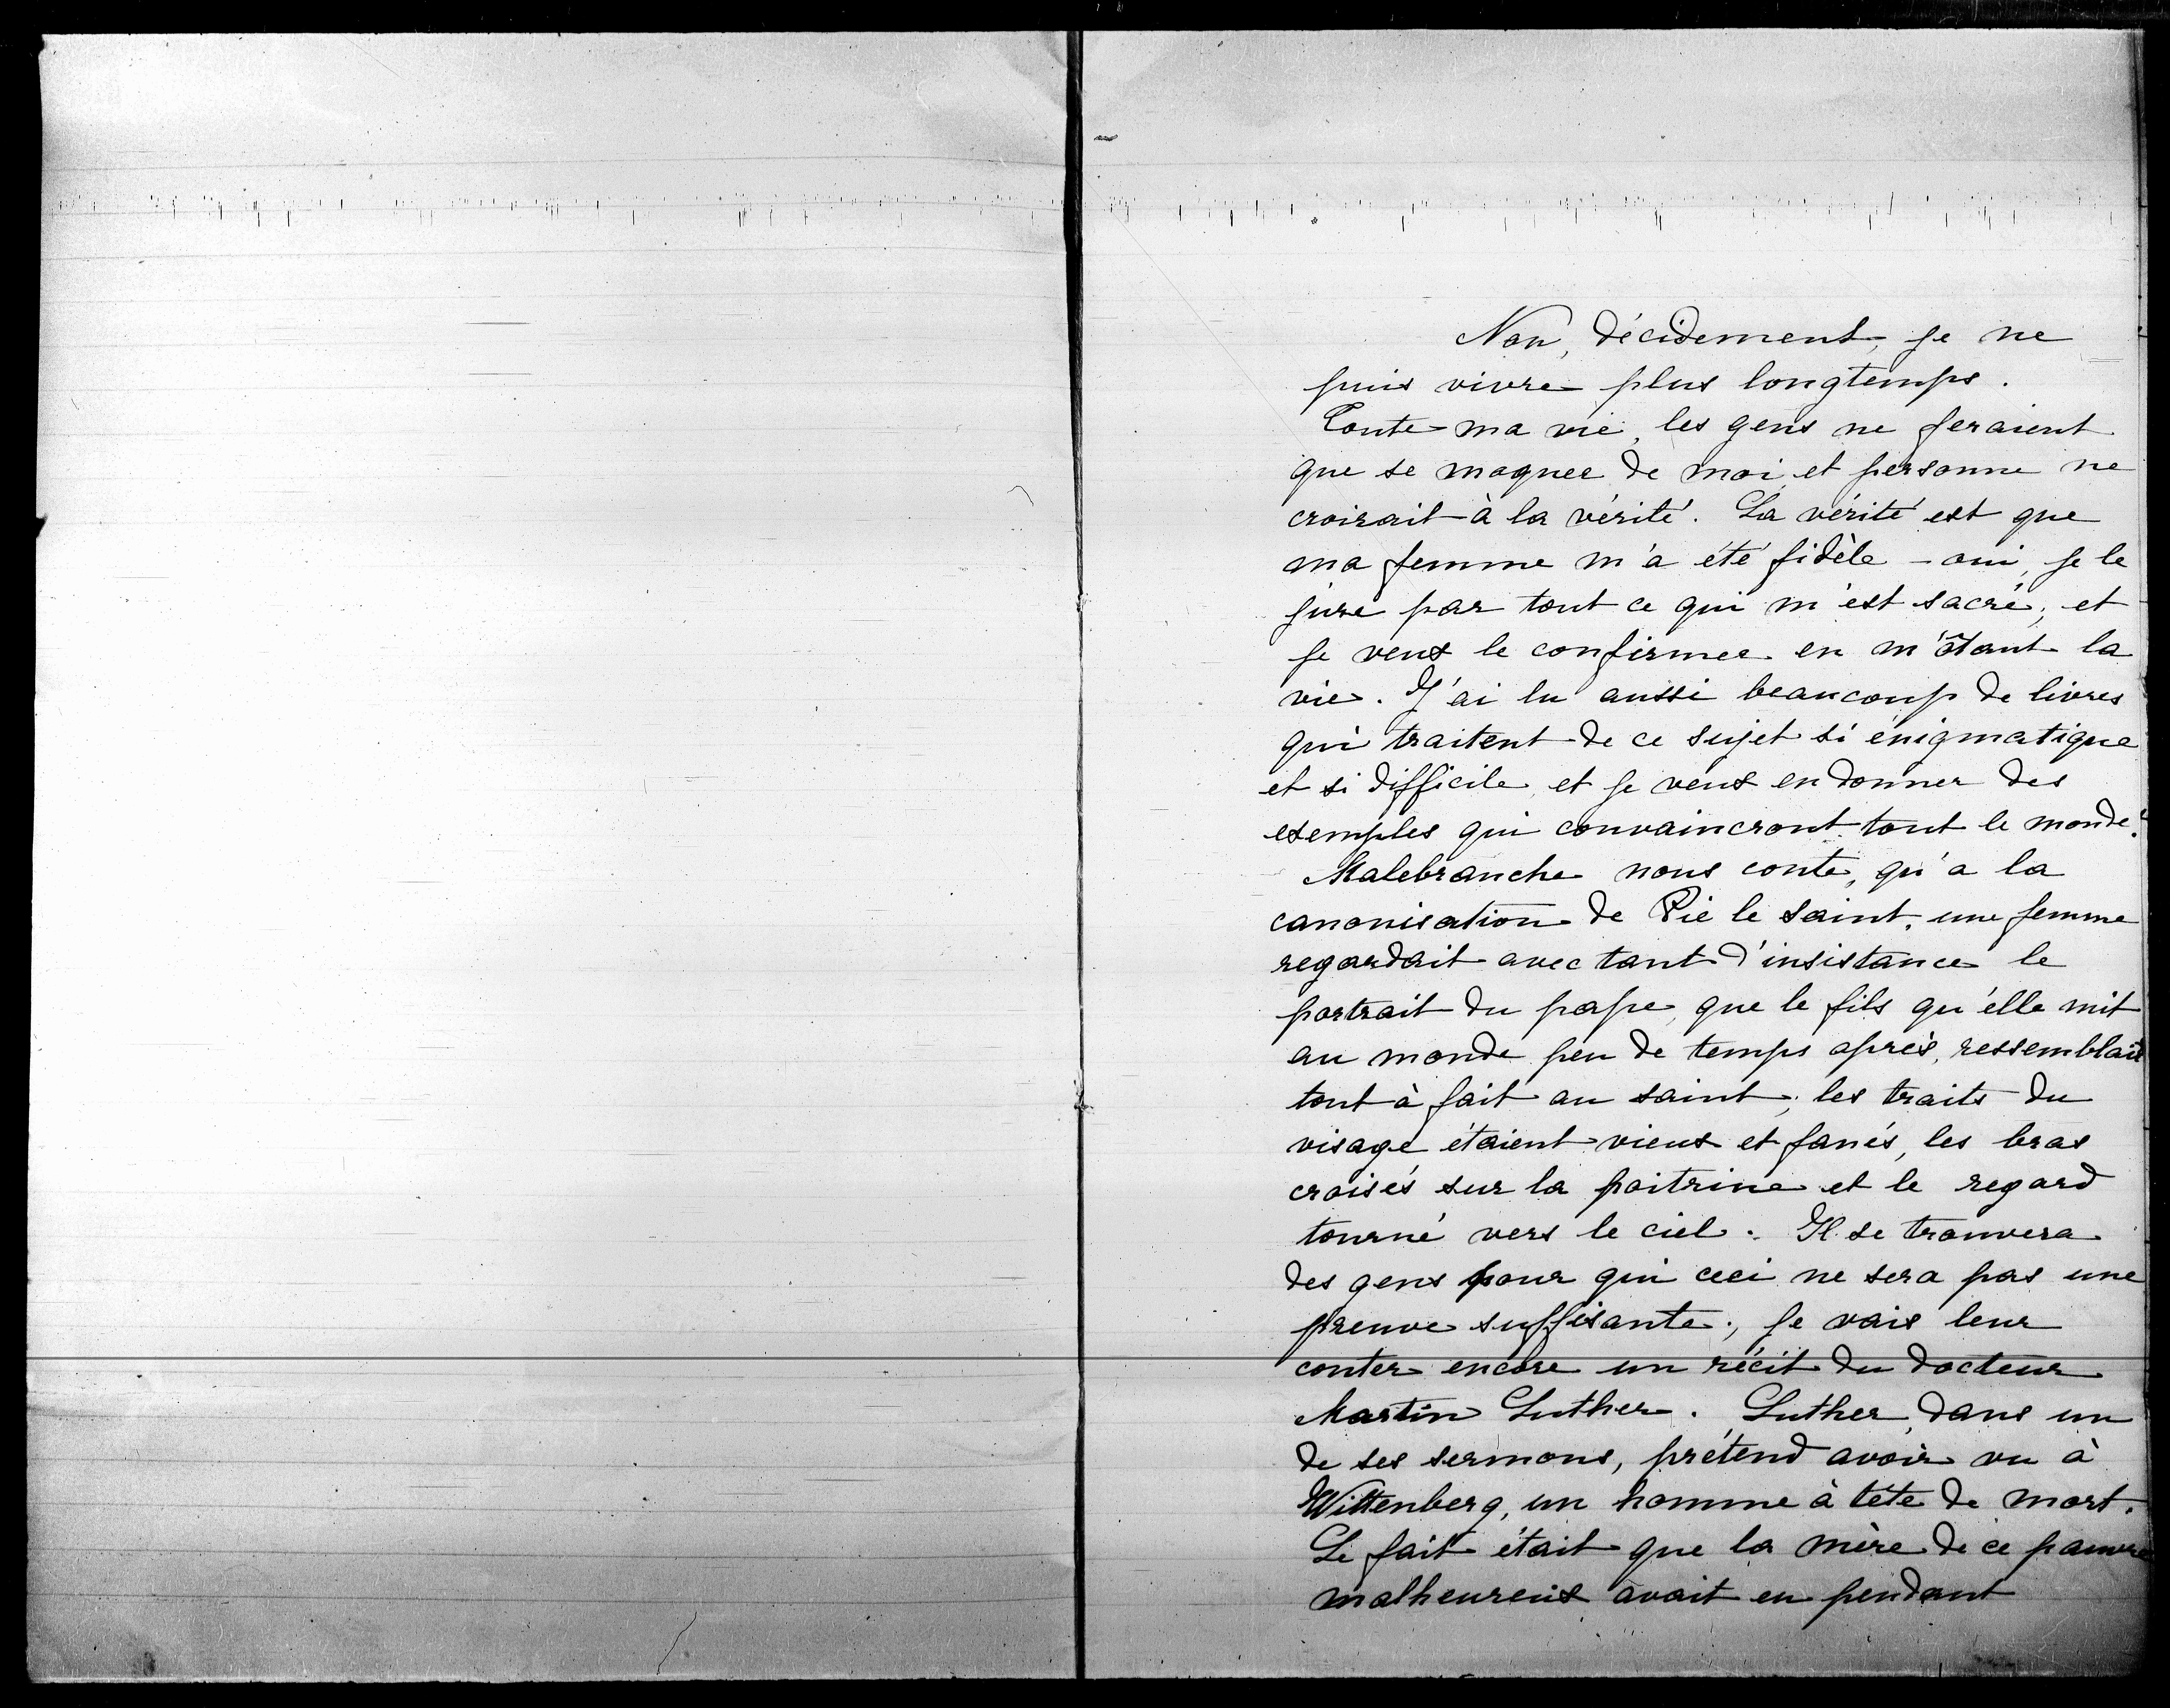 Non, décidement, je ne
puis vivre plus longtemps.
Toute ma vie, les gens ne feraient
que se moquer de moi et personne ne
croirait à la vérité. La vérité est que
ma femme m'a été fidèle - oui, je le
jure par tout ce qui m'est sacré, et
je veux le confirmer en m'ôtant la
vie. J'ai lu aussi beaucoup de livres
qui traitent de ce sujet si énigmatique
et si difficile, et je veux en donner des
exemples qui convaincront tout le monde.
Malebranche nous conte, qu'a la
canonisation de Pie le saint, une femme
regardait avec tant d'insistance le
portrait du pape, que le fils qu'elle mit
au monde peu de temps après, ressemblait
tout à fait au saint; les traits du
visage étaient vieux et fanés, les bras
croisés sur la poitrine et le regard
tourné vers le ciel. Il se trouvera
des gens pour qui ceci ne sera pas une
preuve suffisante; je vais leur
conter encore un récit du docteur
Martin Luther. Luther, dans un
de ses sermons, prétend avoir vu à
Wittenberg, un homme à tête de mort.
Le fait était que la mère de ce pauvre
malheureux avait eu pendant